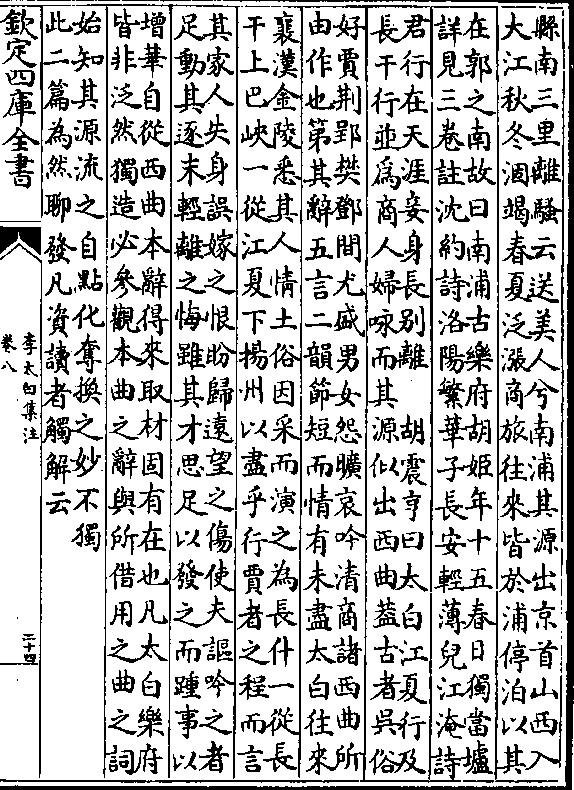 縣南三里離騷云送美人兮南浦其源出京首山西入
大江秋冬涸竭春夏泛漲商旅往來皆於浦停泊以其
在郭之南故曰南浦古樂府胡姬年十五春日獨當壚
詳見三卷註沈約詩洛陽繁華子長安輕薄兒江淹詩
君行在天涯妾身長別離 胡震亨曰太白江夏行及
長干行並爲商人婦咏而其源似出西曲蓋古者吳俗
好賈荆郢樊鄧間尤盛男女怨曠哀吟清商諸西曲所
由作也第其辭五言二韻節短而情有未盡太白往來
襄漢金陵悉其人情土俗因采而演之為長什一從長
干上巴峽一從江夏下揚州以盡乎行賈者之程而言
其家人失身誤嫁之恨盼歸遠望之傷使夫謳吟之者
足動其逐末輕離之悔雖其才思足以發之而踵事以
增華自從西曲本辭得來取材固有在也凡太白樂府
皆非泛然獨造必參觀本曲之辭與所借用之曲之詞
始知其源流之自點化奪換之妙不獨
此二篇為然聊發凡資讀者觸解云
欽定四庫全書
李太白集注
卷八
二十四